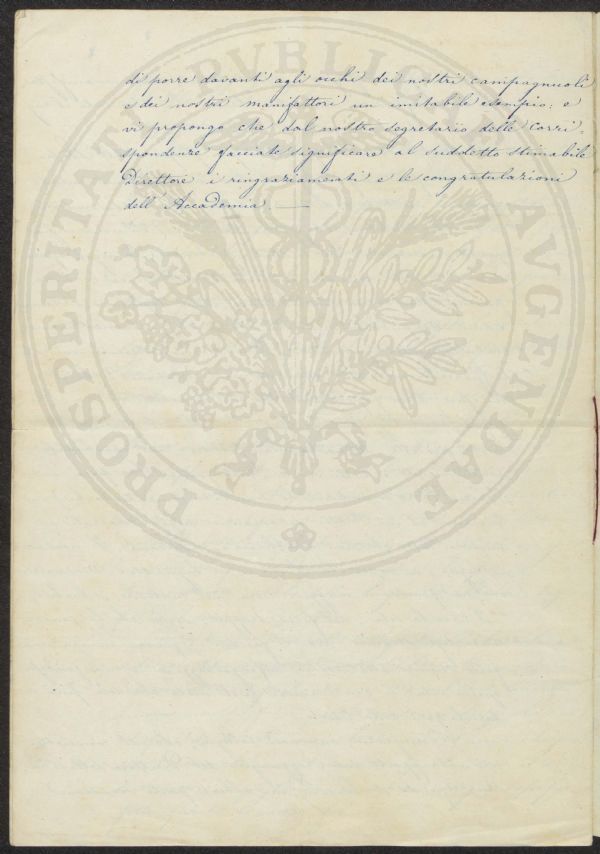 di porre davanti agli occhi dei nostri campagnuoli
e dei nostri manifattori un imitabile esempio: e
vi propongo che dal nostro segretario delle Corri=
spondenze facciate significare al suddetto stimabile
Direttore i ringraziamenti e le congratulazioni
dell'Accademia. —
PROSPERITATI PVBLICAE AVGENDAE